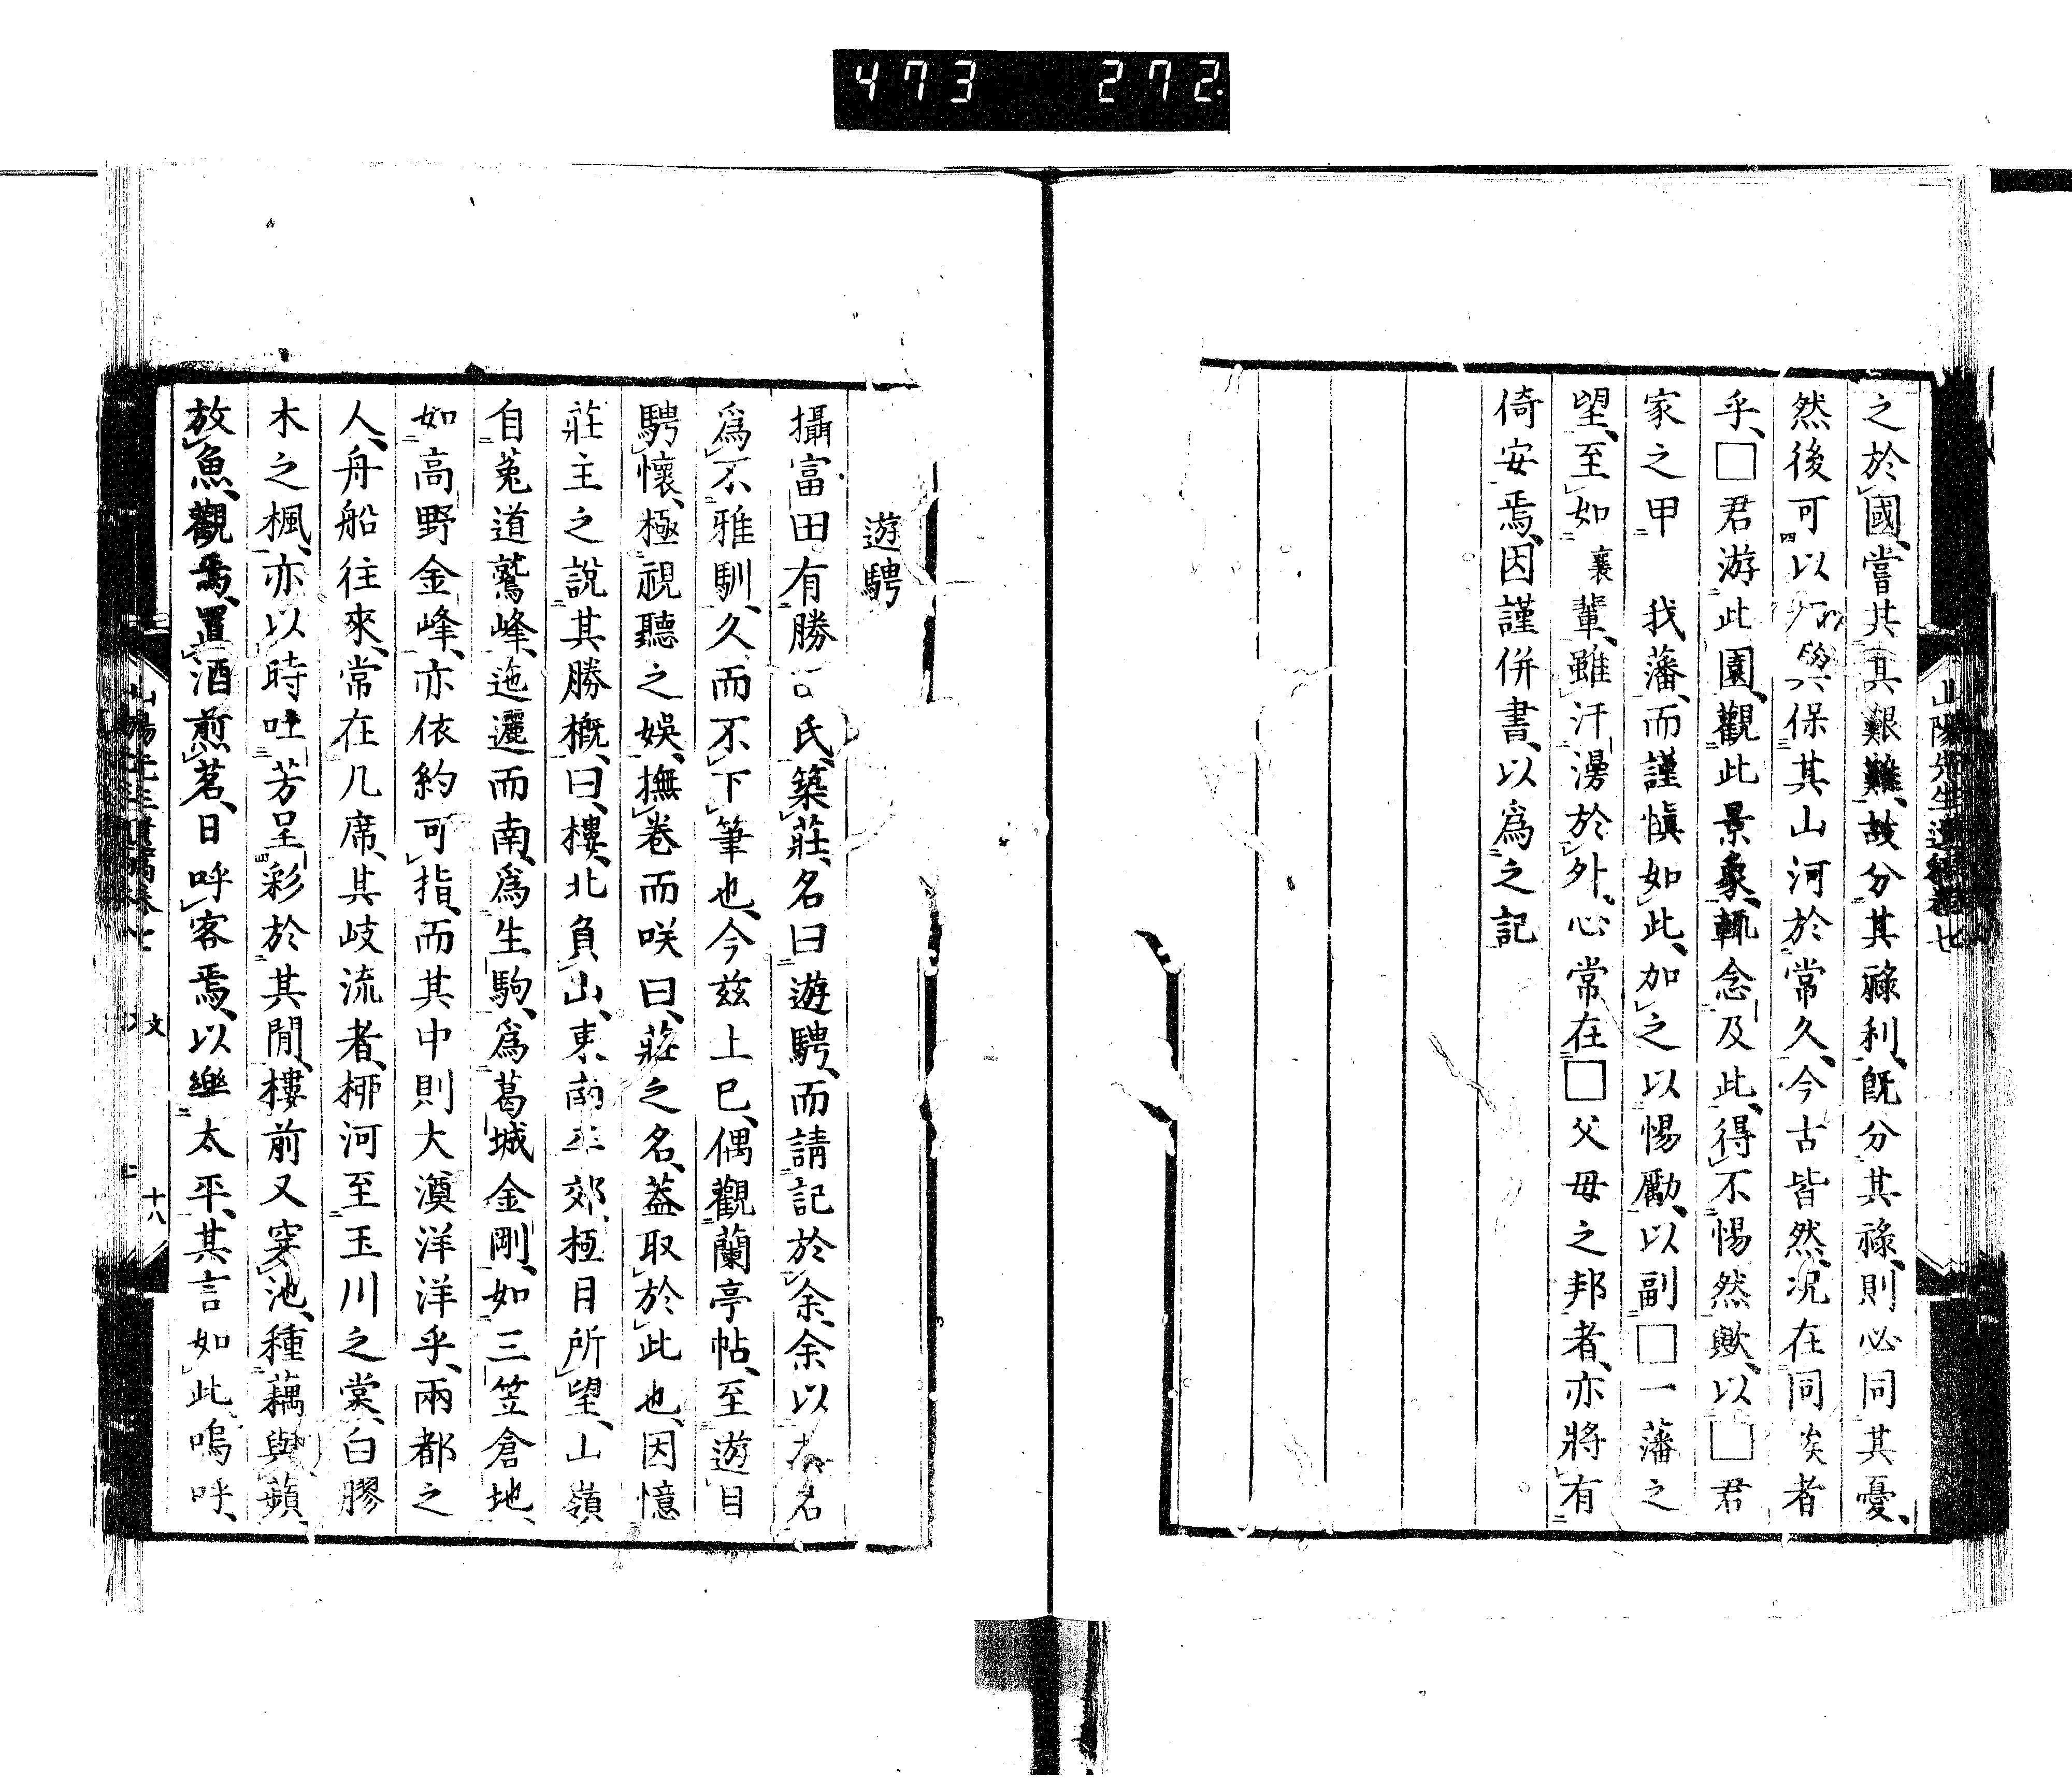 473 272.
之於國、嘗其其艱難、故分其祿利、既分其祿、則必同其憂、
然後可以保其山河於常久、今古皆然、況在同者
乎、□君游此園、觀此景象、輒念及此、得不惕然歟、以□君
家之甲 我藩、而謹慎如此、加之以惕勵、以副□一藩之
望、至如襄輩、雖汗漫於外、心常在□父母之邦者、亦將有
倚安焉、因謹併書、以爲之記
遊騁
攝富田有勝氏、築莊、名曰遊騁、而請記於余、余以名
爲不雅馴、久而不下筆也、今茲上巳、偶觀蘭亭帖、至遊目
騁懷、極視聽之娛、撫卷而咲曰、莊之名、蓋取於此也、因憶
莊主之說其勝概、曰、樓、北負山、東南郊、極目所望、山嶺
自菟道鷲峰、迤邐而南、爲生駒、爲葛城金剛、如三笠倉地、
如高野金峰、亦依約可指、而其中則大澳洋洋乎、兩都之
人、舟船往來、常在几席、其歧流者、柳河至玉川之棠、白膠
木之楓、亦以時吐芳呈彩於其間、樓前又穿池、種藕與蘋、
放魚觀焉、置酒煎茗、日呼客焉、以樂太平、其言如此嗚呼、
文
十八